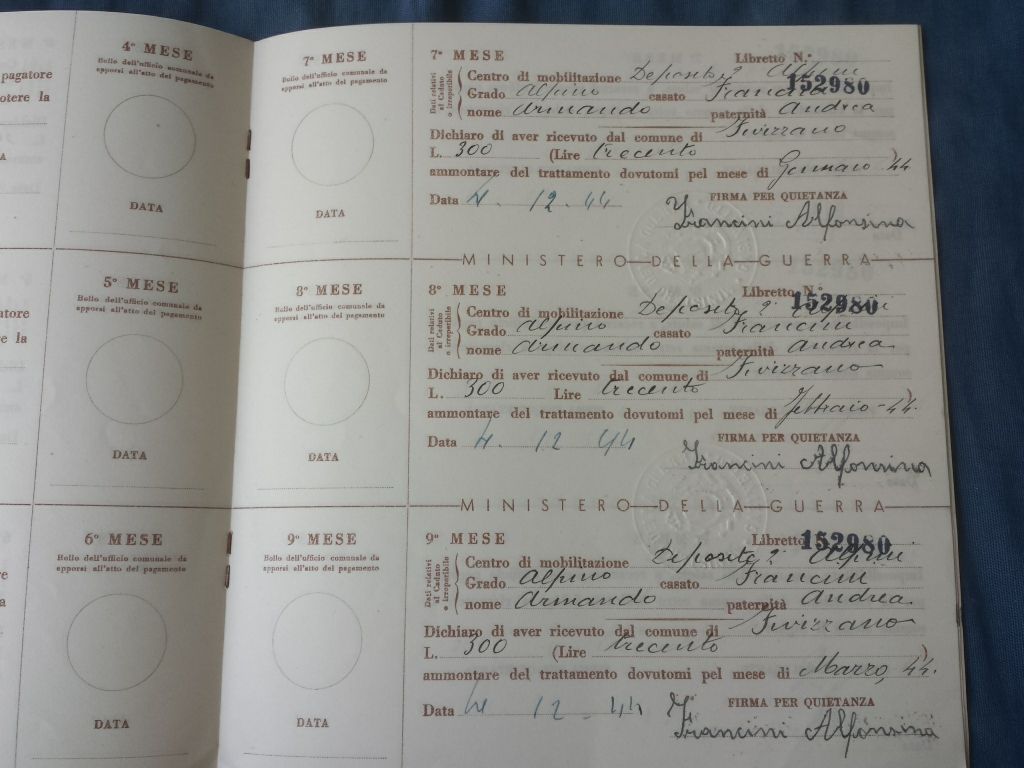 pagatore
potere la
4º MESE
Bollo dell'ufficio comunale da
apporsi all'atto del pagamento
DATA
7º MESE
Bollo dell'ufficio comunale da
apporsi all'atto del pagamento
DATA
7º MESE Libretto N.º 152980
Dati relativi
al Caduto
o irreperibile
Centro di mobilitazione Deposito 2º Alpini
Grado Alpino casato Francini
nome Armando paternità Andrea
Dichiaro di aver ricevuto dal comune di Fivizzano
L. 300 (Lire trecento )
ammontare del trattamento dovutomi pel mese di Gennaio 44
Data 4. 12. 44 FIRMA PER QUIETANZA
Francini Alfonsina
MINISTERO DELLA GUERRA
5º MESE
Bollo dell'ufficio comunale da
apporsi all'atto del pagamento
DATA
8º MESE
Bollo dell'ufficio comunale da
apporsi all'atto del pagamento
DATA
8º MESE Libretto N.º 152980
Dati relativi
al Caduto
o irreperibile
Centro di mobilitazione Deposito 2º Alpini
Grado Alpino casato Francini
nome Armando paternità Andrea
Dichiaro di aver ricevuto dal comune di Fivizzano
L. 300 Lire trecento )
ammontare del trattamento dovutomi pel mese di Febbraio - 44.
Data 4. 12 44 FIRMA PER QUIETANZA
Francini Alfonsina
MINISTERO DELLA GUERRA
6º MESE
Bollo dell'ufficio comunale da
apporsi all'atto del pagamento
DATA
9º MESE
Bollo dell'ufficio comunale da
apporsi all'atto del pagamento
DATA
9º MESE Libretto 152980
Dati relativi
al Caduto
o irreperibile
Centro di mobilitazione Deposito 2º Alpini
Grado Alpino casato Francini
nome Armando paternità Andrea
Dichiaro di aver ricevuto dal comune di Fivizzano
L. 300 (Lire trecento )
ammontare del trattamento dovutomi pel mese di Marzo, 44.
Data 4 12 - 44 FIRMA PER QUIETANZA
Francini Alfonsina